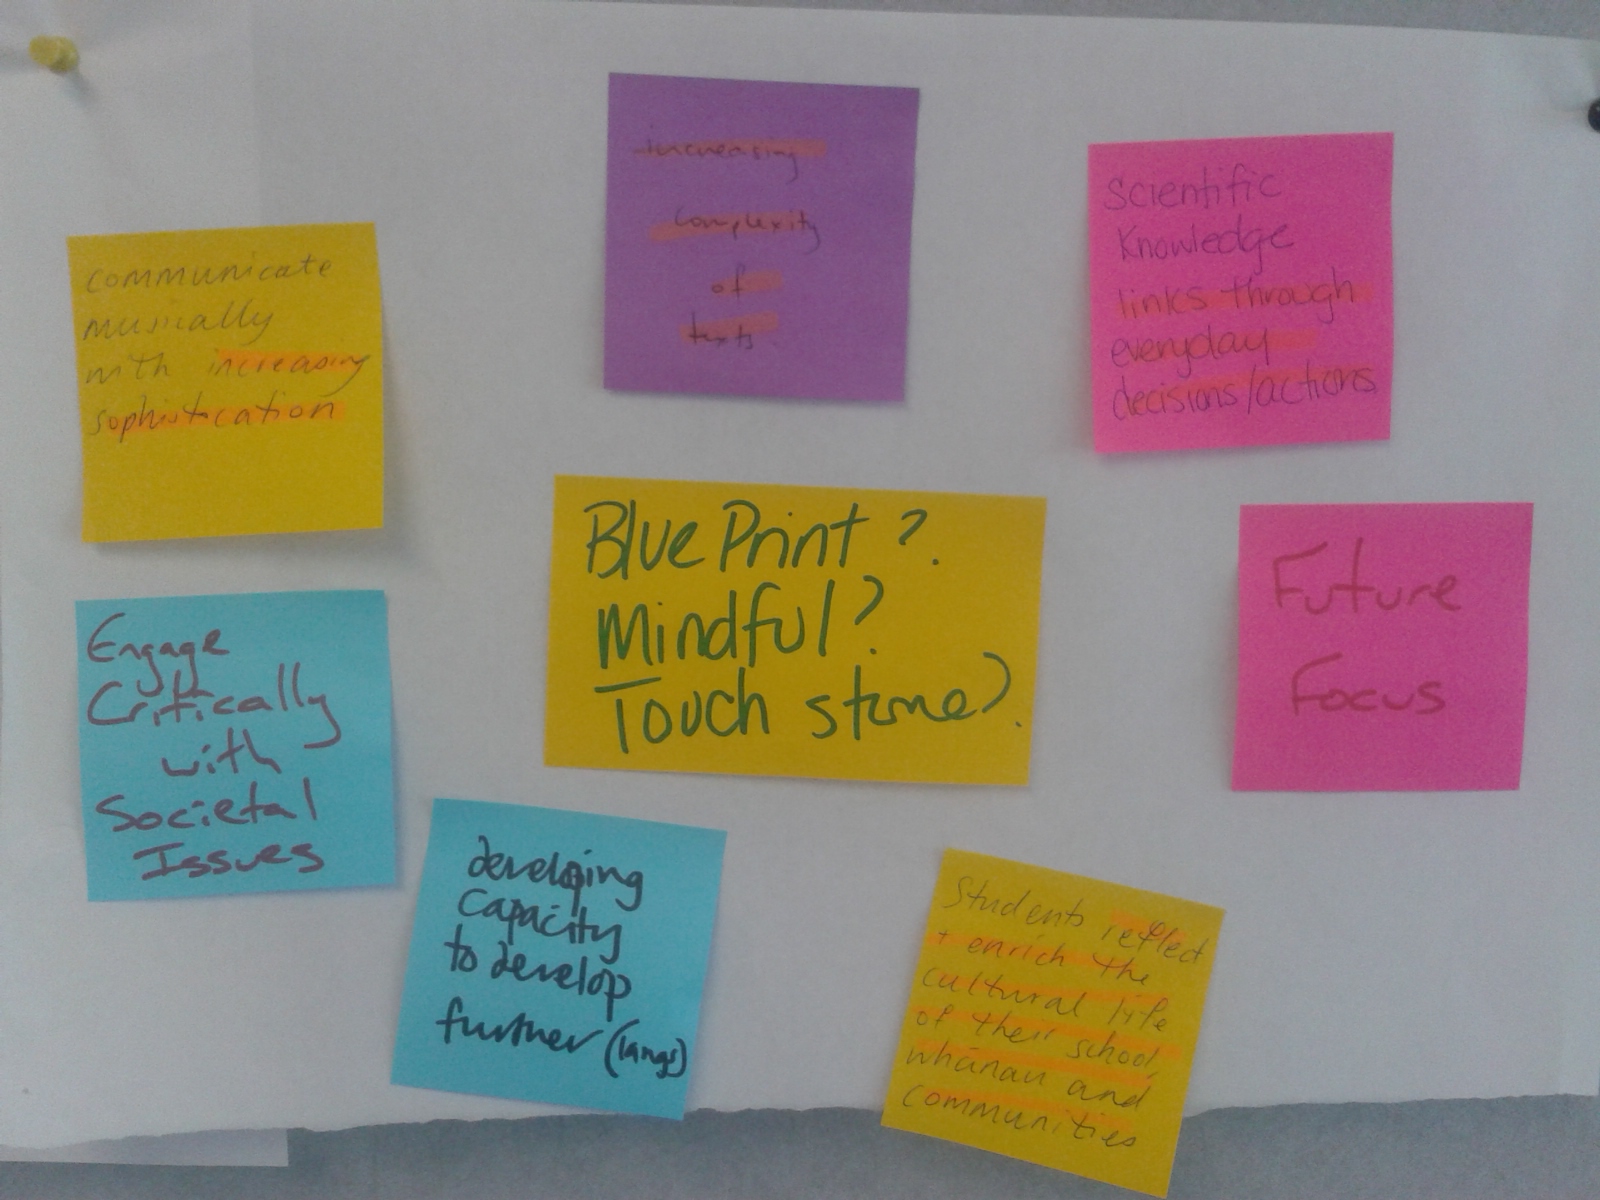 increasing
complexity
of
texts
Scientific
Knowledge
links through
everyday
decisions/actions
communicate
musically
with increasing
sophistication
Blue Print?
Mindful?
Touch stone?
Future
Focus
Engage
Critically
with
Societal
Issues
developing
capacity
to develop
further (langs)
Students reflect
+ enrich the
cultural life
of their school,
whānau and
communities